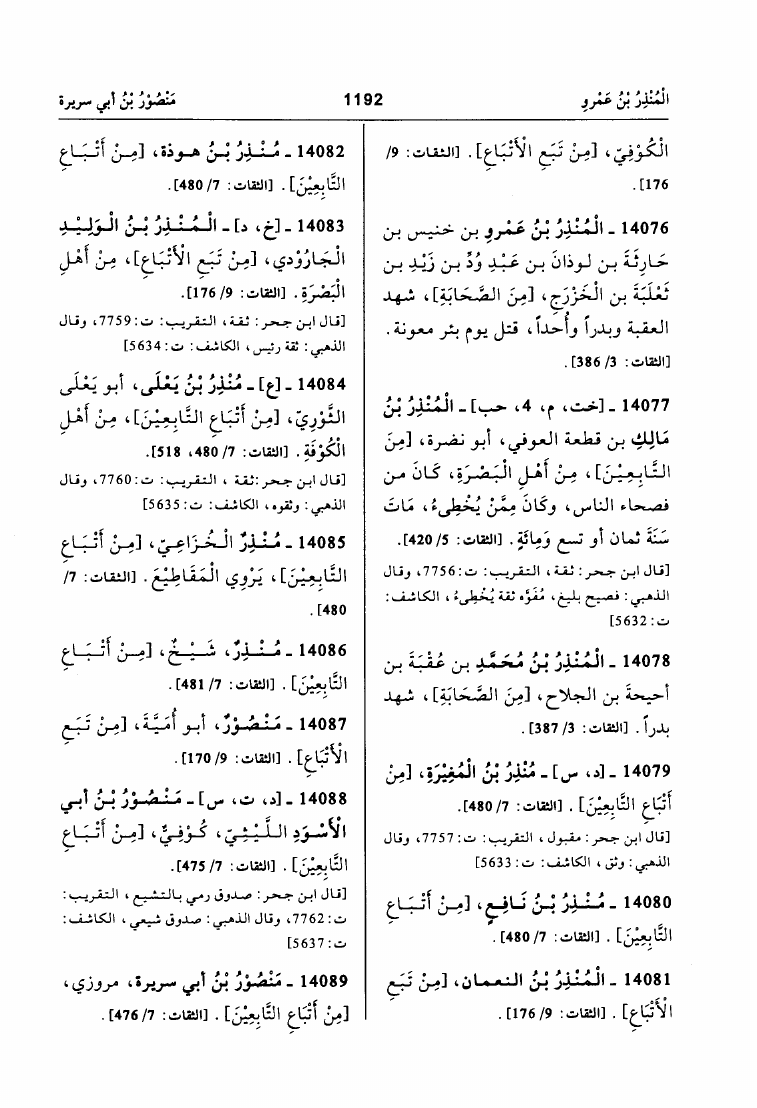 الْمُنْذِرُ بْنُ عَمْرٍو 1192 مَنْصُوْرُ بْنُ أبي سريرة
الْكُوْفِيّ، [مِنْ تَبَعِ الْأَتْبَاعِ]. [الثقات: 9/
176].
14076 - الْمُنْذِرُ بْنُ عَمْرِو بن خنيس بن
حَارِثَةَ بن لوذانَ بن عَبْدِ وُدّ بن زَيْدِ بن
ثَعْلَبَةَ بن الْخَزْرَجِ، [مِنَ الصَّحَابَةِ]، شهد
العقبة وبدراً وأحداً، قتل يوم بئر معونة.
[الثقات: 3/ 386].
14077 - [خت، م، 4، حب] - الْمُنْذِرُ بْنُ
مَالِكِ بن قطعة العوفي، أبو نضرة، [مِنَ
التَّابِعِيْنَ]، مِنْ أَهْلِ الْبَصْرَةِ، كَانَ من
فصحاء الناس، وكَانَ مِمَّنْ يُخْطِىءُ، مَاتَ
سَنَةَ ثمان أو تسع وَمِائَةٍ. [الثقات: 5/ 420].
[قال ابن حجر: ثقة، التقريب: ت: 7756، وقال
الذهبي: فصيح بليغ، مُفَوَّه ثقة يُخْطِىءُ، الكاشف:
ت: 5632]
14078 - الْمُنْذِرُ بْنُ مُحَمَّدِ بن عُقْبَةَ بن
أحيحة بن الجلاح، [مِنَ الصَّحَابَةِ]، شهد
بدراً. [الثقات: 3/ 387].
14079 - [د، س] - مُنْذِرُ بْنُ الْمُغِيْرَةِ، [مِنْ
أَتْبَاعِ التَّابِعِيْنَ]. [الثقات: 7/ 480].
[قال ابن حجر: مقبول، التقريب: ت: 7757، وقال
الذهبي: وثق، الكاشف: ت: 5633]
14080 - مُنْذِرُ بْنُ نَافِعٍ، [مِنْ أَتْبَاعِ
التَّابِعِيْنَ]. [الثقات: 7/ 480].
14081 - الْمُنْذِرُ بْنُ النعمان، [مِنْ تَبَعِ
الْأَتْبَاعِ]. [الثقات: 9/ 176].
14082 - مُنْذِرُ بْنُ هوذة، [مِنْ أَتْبَاعِ
التَّابِعِيْنَ]. [الثقات: 7/ 480].
14083 - [خ، د] - الْمُنْذِرُ بْنُ الْوَلِيْدِ
الْجَارُوْدي، [مِنْ تَبَعِ الْأَتْبَاعِ]، مِنْ أَهْلِ
الْبَصْرَةِ. [الثقات: 9/ 176].
[قال ابن حجر: ثقة، التقريب: ت: 7759، وقال
الذهبي: ثقة رئيس، الكاشف: ت: 5634]
14084 - [ع] - مُنْذِرُ بْنُ يَعْلَى، أبو يَعْلَى
الثَّوْرِيّ، [مِنْ أَتْبَاعِ التَّابِعِيْنَ]، مِنْ أَهْلِ
الْكُوْفَةِ. [الثقات: 7/ 480، 518].
[قال ابن حجر: ثقة، التقريب: ت: 7760، وقال
الذهبي: وثقوه، الكاشف: ت: 5635]
14085 - مُنْذِرٌ الْخُزَاعِيّ، [مِنْ أَتْبَاعِ
التَّابِعِيْنَ]، يَرْوِي الْمَقَاطِيْعَ. [الثقات: 7/
480].
14086 - مُنْذِرٌ، شَيْخٌ، [مِنْ أَتْبَاعِ
التَّابِعِيْنَ]. [الثقات: 7/ 481].
14087 - مَنْصُوْرٌ، أبو أُمَيَّةَ، [مِنْ تَبَعِ
الْأَتْبَاعِ]. [الثقات: 9/ 170].
14088 - [د، ت، س] - مَنْصُوْرُ بْنُ أبي
الْأَسْوَدِ اللَّيْثِيّ، كُوْفِيٌّ، [مِنْ أَتْبَاعِ
التَّابِعِيْنَ]. [الثقات: 7/ 475].
[قال ابن حجر: صدوق رمي بالتشيع، التقريب:
ت: 7762، وقال الذهبي: صدوق شيعي، الكاشف:
ت: 5637]
14089 - مَنْصُوْرُ بْنُ أبي سريرة، مروزي،
[مِنْ أَتْبَاعِ التَّابِعِيْنَ]. [الثقات: 7/ 476].